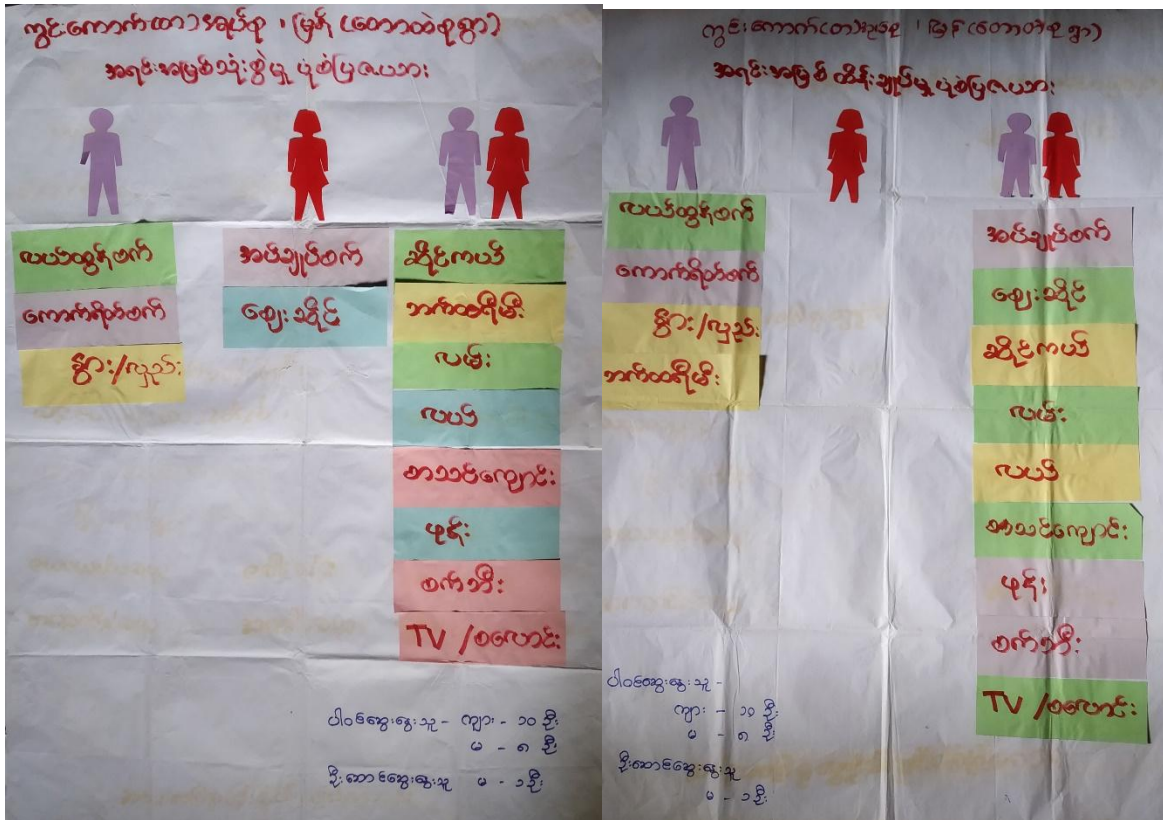 ကွင်းကောက်(တာ)အုပ်စု ၊ မြှန် (တောထဲစုရွာ)
အရင်းအမြစ်သုံးစွဲမှု ပုံစံပြဇယား
လယ်ထွန်စက်
ကောက်ရိတ်စက်
နွား/လှည်း
အပ်ချုပ်စက်
ဈေးဆိုင်
ဆိုင်ကယ်
ဘက်ထရီမီး
လမ်း
လယ်
စာသင်ကျောင်း
ဖုန်း
စက်ဘီး
TV /စလောင်း
ပါဝင်ဆွေးနွေးသူ - ကျား - ၁၀ ဦး
မ - ၈ ဦး
ဦးဆောင်ဆွေးနွေးသူ မ - ၁ ဦး
ကွင်းကောက်(တာ)အုပ်စု ၊ မြှန် (တောထဲစုရွာ)
အရင်းအမြစ် ထိန်းချုပ်မှု ပုံစံပြဇယား
လယ်ထွန်စက်
ကောက်ရိတ်စက်
နွား/လှည်း
ဘက်ထရီမီး
အပ်ချုပ်စက်
ဈေးဆိုင်
ဆိုင်ကယ်
လမ်း
လယ်
စာသင်ကျောင်း
ဖုန်း
စက်ဘီး
TV /စလောင်း
ပါဝင်ဆွေးနွေးသူ -
ကျား - ၁၀ ဦး
မ - ၈ ဦး
ဦးဆောင်ဆွေးနွေးသူ
မ - ၁ ဦး